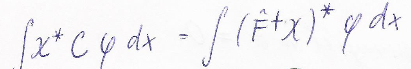 ∫χ* C φ dx = ∫(F̂⁺χ)* φ dx